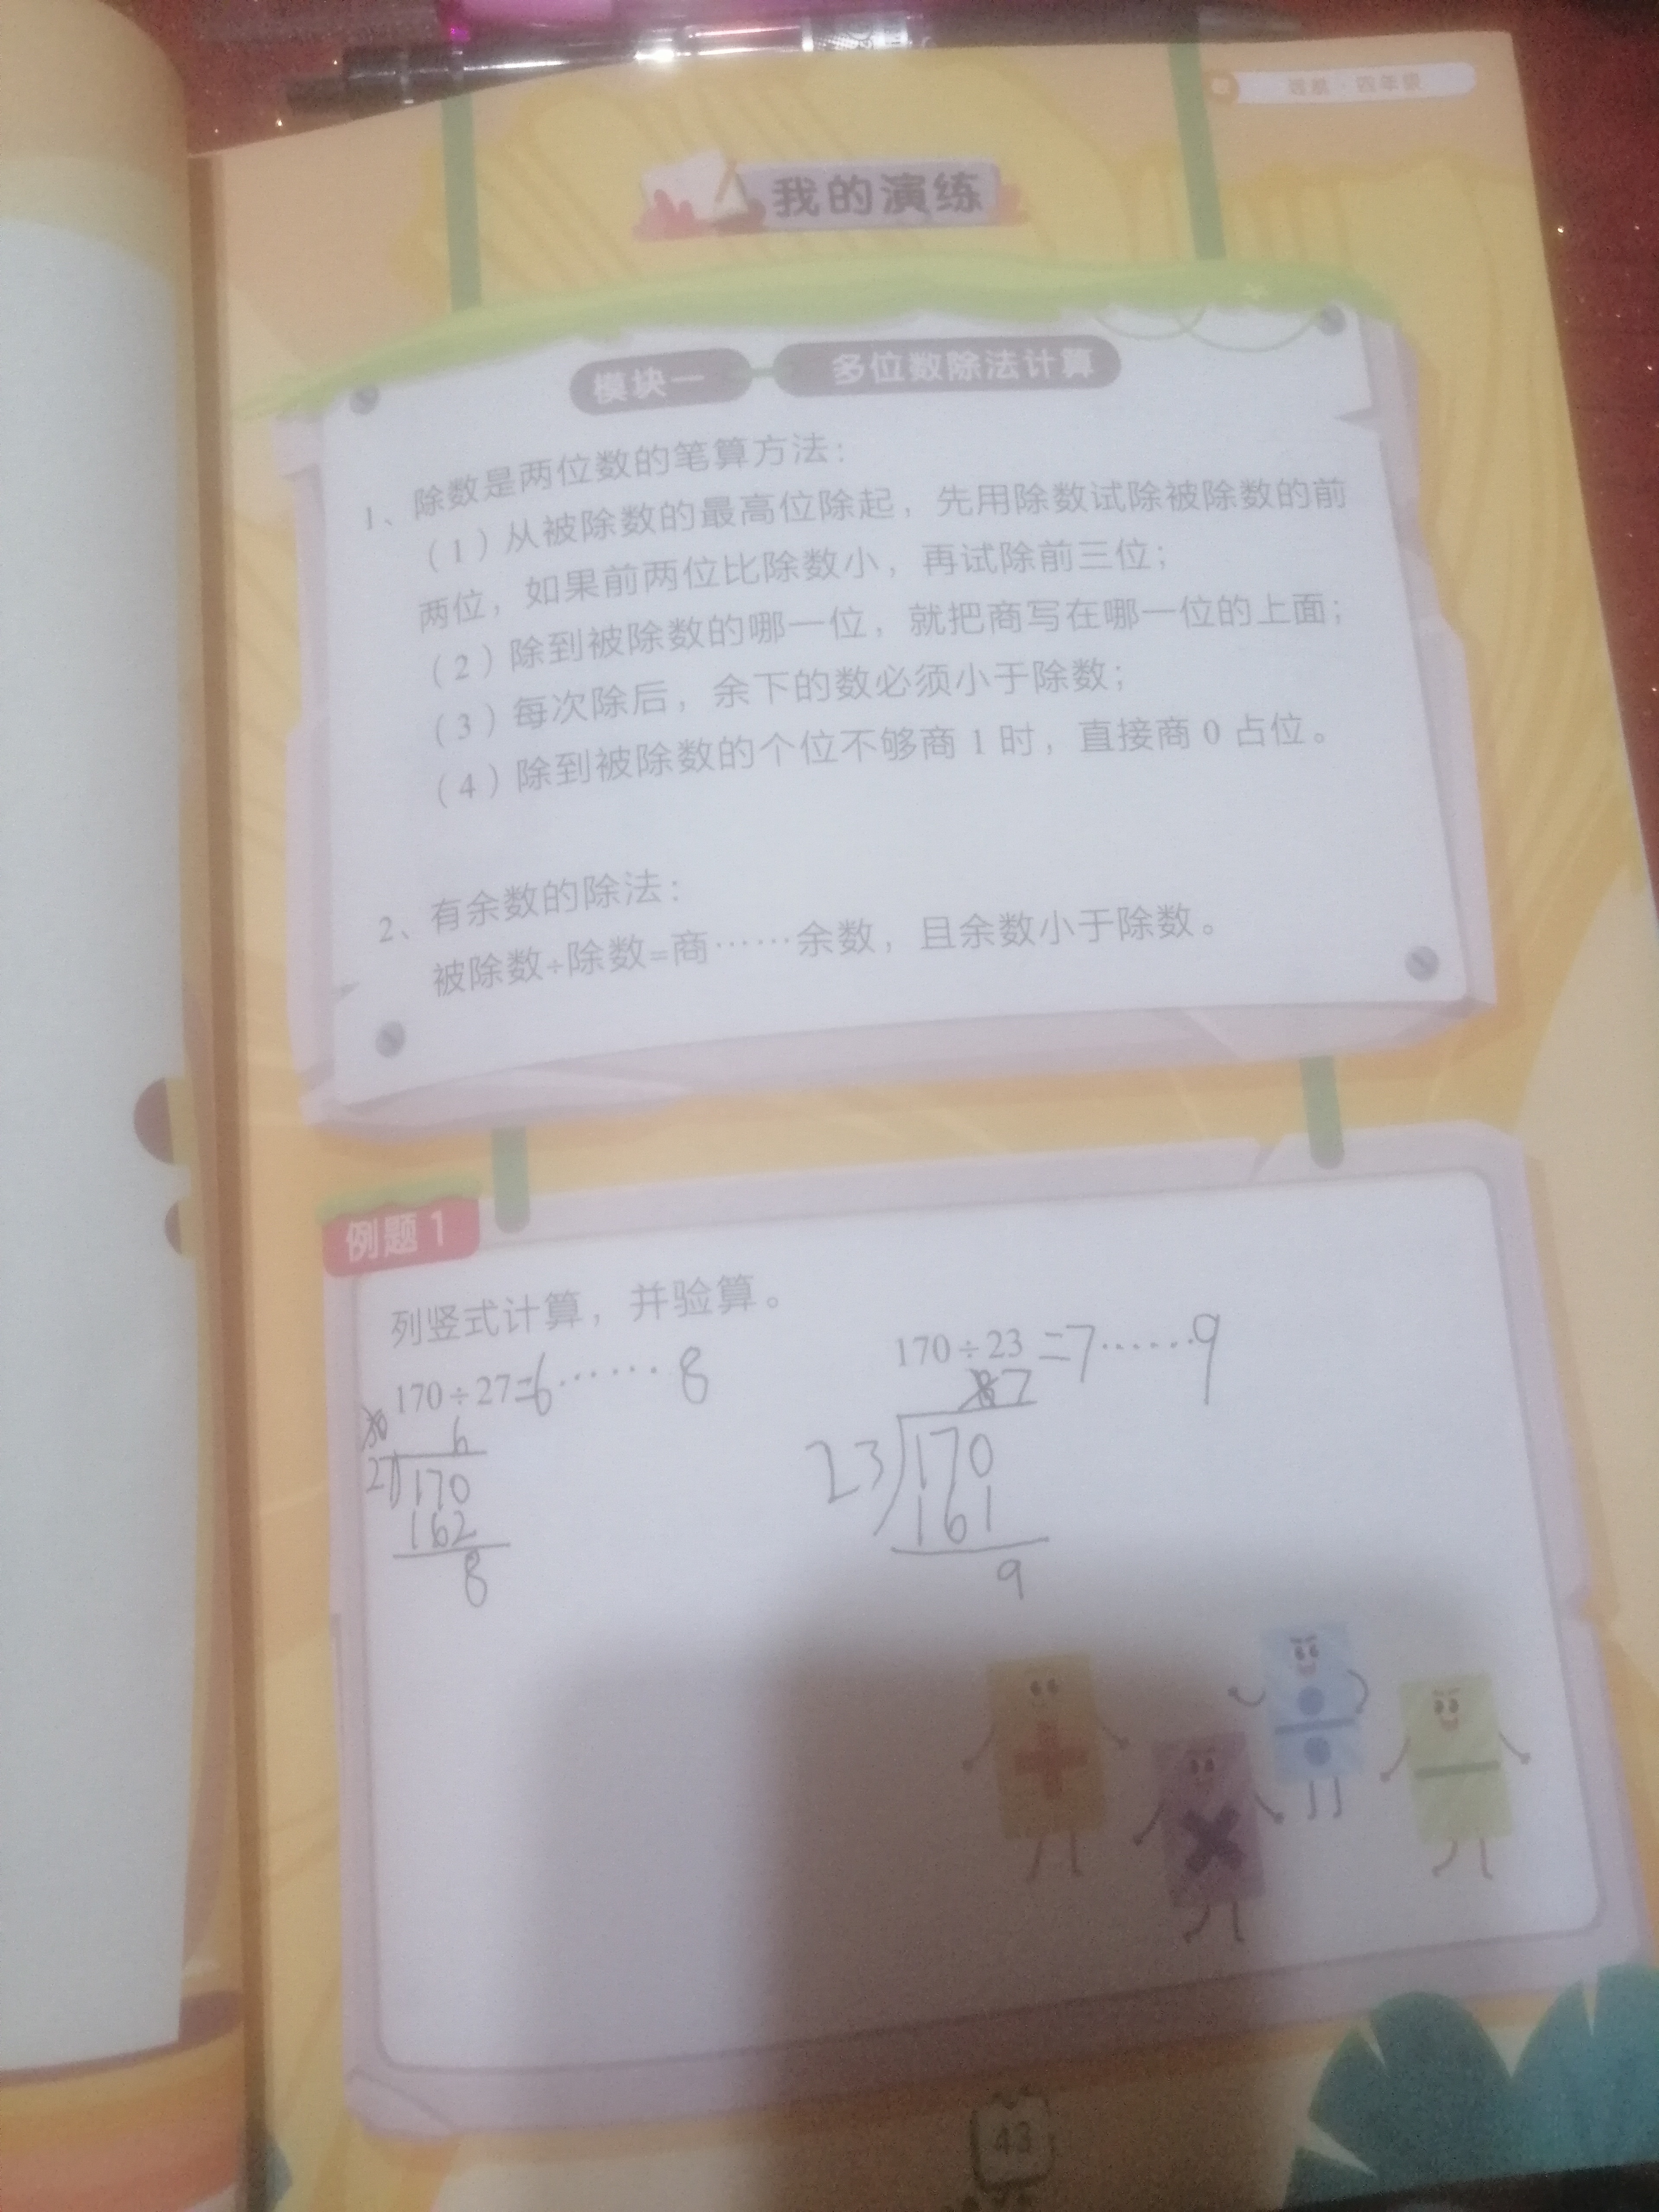 四年级
我的演练
模块一 多位数除法计算
1、除数是两位数的笔算方法：
（1）从被除数的最高位除起，先用除数试除被除数的前
两位，如果前两位比除数小，再试除前三位；
（2）除到被除数的哪一位，就把商写在哪一位的上面；
（3）每次除后，余下的数必须小于除数；
（4）除到被除数的个位不够商1时，直接商0占位。
2、有余数的除法：
被除数÷除数=商……余数，且余数小于除数。
例题1
列竖式计算，并验算。
170÷27=6……8
6
27 170
162
8
170÷23=7……9
7
23 170
161
9
43